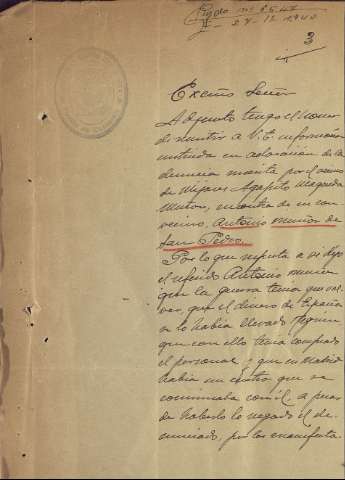 27-12-1940
3
Excmo Señor
Adjunto tengo el honor
de remitir a V.E. información
instruida en aclaración de la
denuncia escrita por el vecino
de Mijares Agapito
Muñoz, en contra de su con-
vecino, Antonio Muñoz de
San Pedro.
Por lo que respecta a si dijo
el referido Antonio Muñoz
que la guerra tenia que vol-
ver, que el dinero de España
se lo habia llevado Negrin
que con ello tenia comprado
el personal y que en Madrid
habia un centro que se
comunicaba con él a pesar
de haberlo negado el de-
nunciado, por las manifesta-